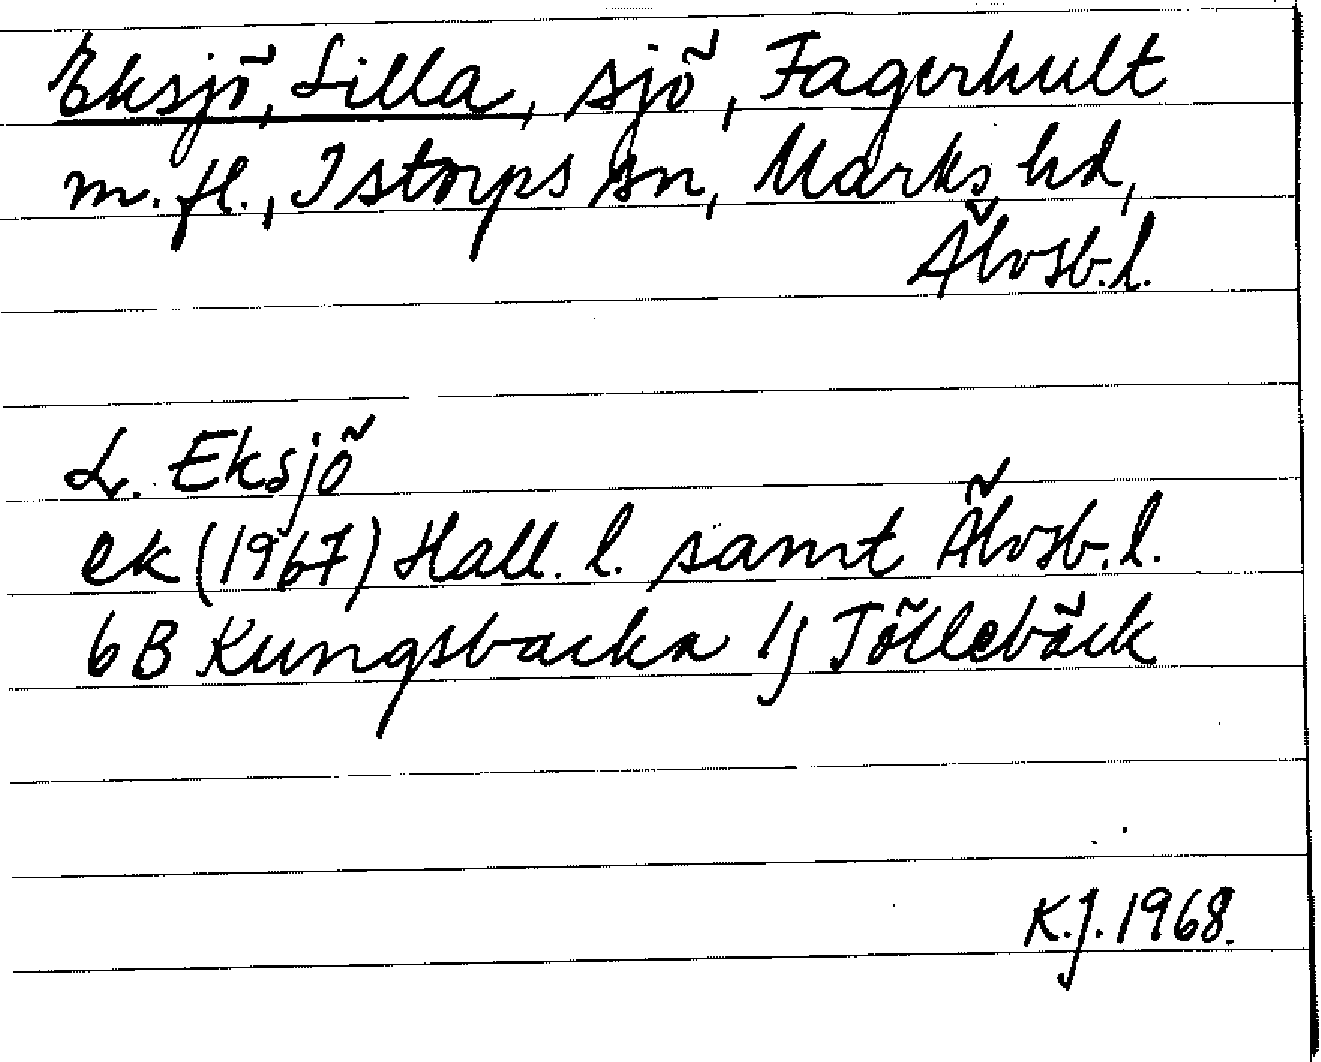 Eksjö, Lilla, sjö, Fagerhult
m.fl., Istorps sn, Marks hd,
Älvsb.l.
L. Eksjö
ek (1967) Hall. l. samt Älvsb.l.
6B Kungsbacka 1j Töllebäck
K.J. 1968.